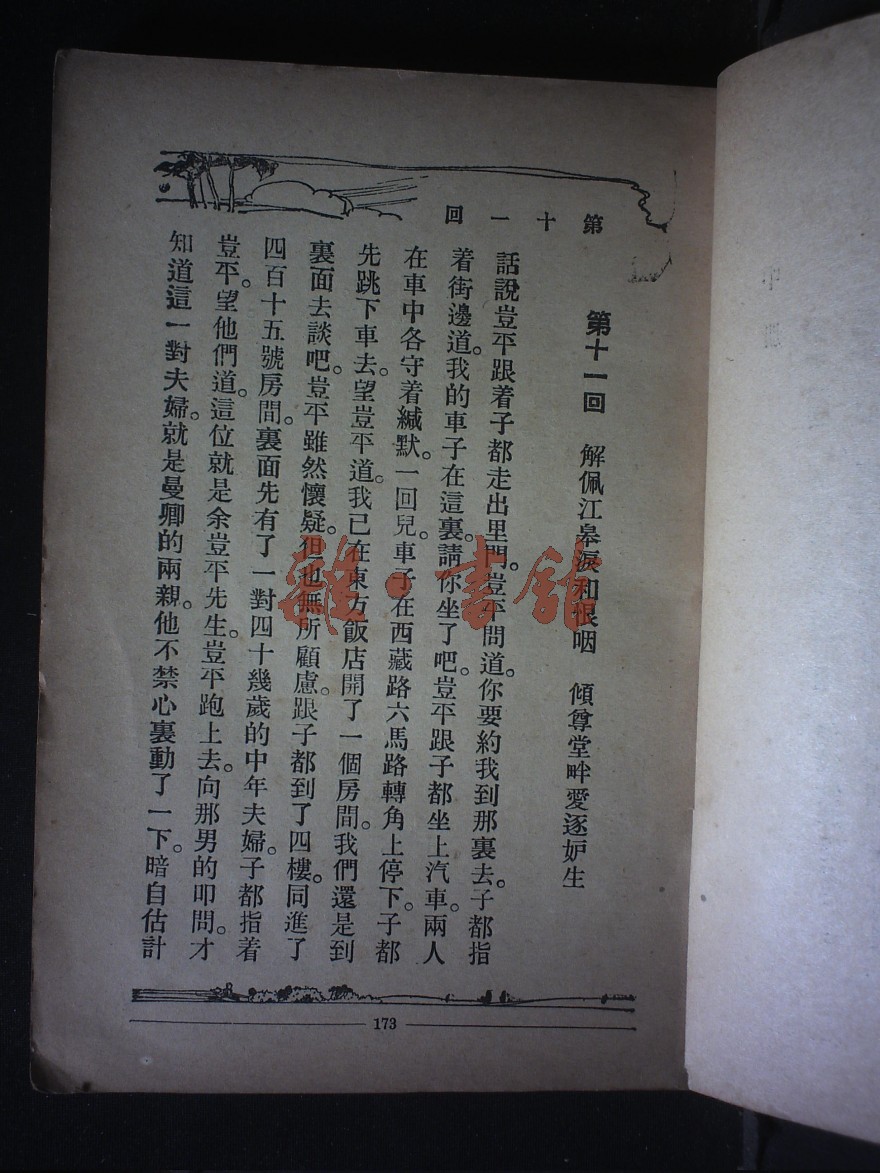 第十一回
第十一回　解佩江皋淚和恨咽　傾尊堂畔愛逐妒生
話說豈平跟着子都走出里門。豈平問道。你要約我到那裏去。子都指
着街邊道。我的車子在這裏。請你坐了吧。豈平跟子都坐上汽車。兩人
在車中各守着緘默。一回兒。車子在西藏路六馬路轉角上停下。子都
先跳下車去。望豈平道。我已在東方飯店開了一個房間。我們還是到
裏面去談吧。豈平雖然懷疑。但也無所顧慮。跟子都到了四樓。同進了
四百十五號房間。裏面先有了一對四十幾歲的中年夫婦。子都指着
豈平。望他們道。這位就是余豈平先生。豈平跑上去。向那男的叩問。才
知道這一對夫婦。就是曼卿的兩親。他不禁心裏動了一下。暗自估計
173
雜·書館